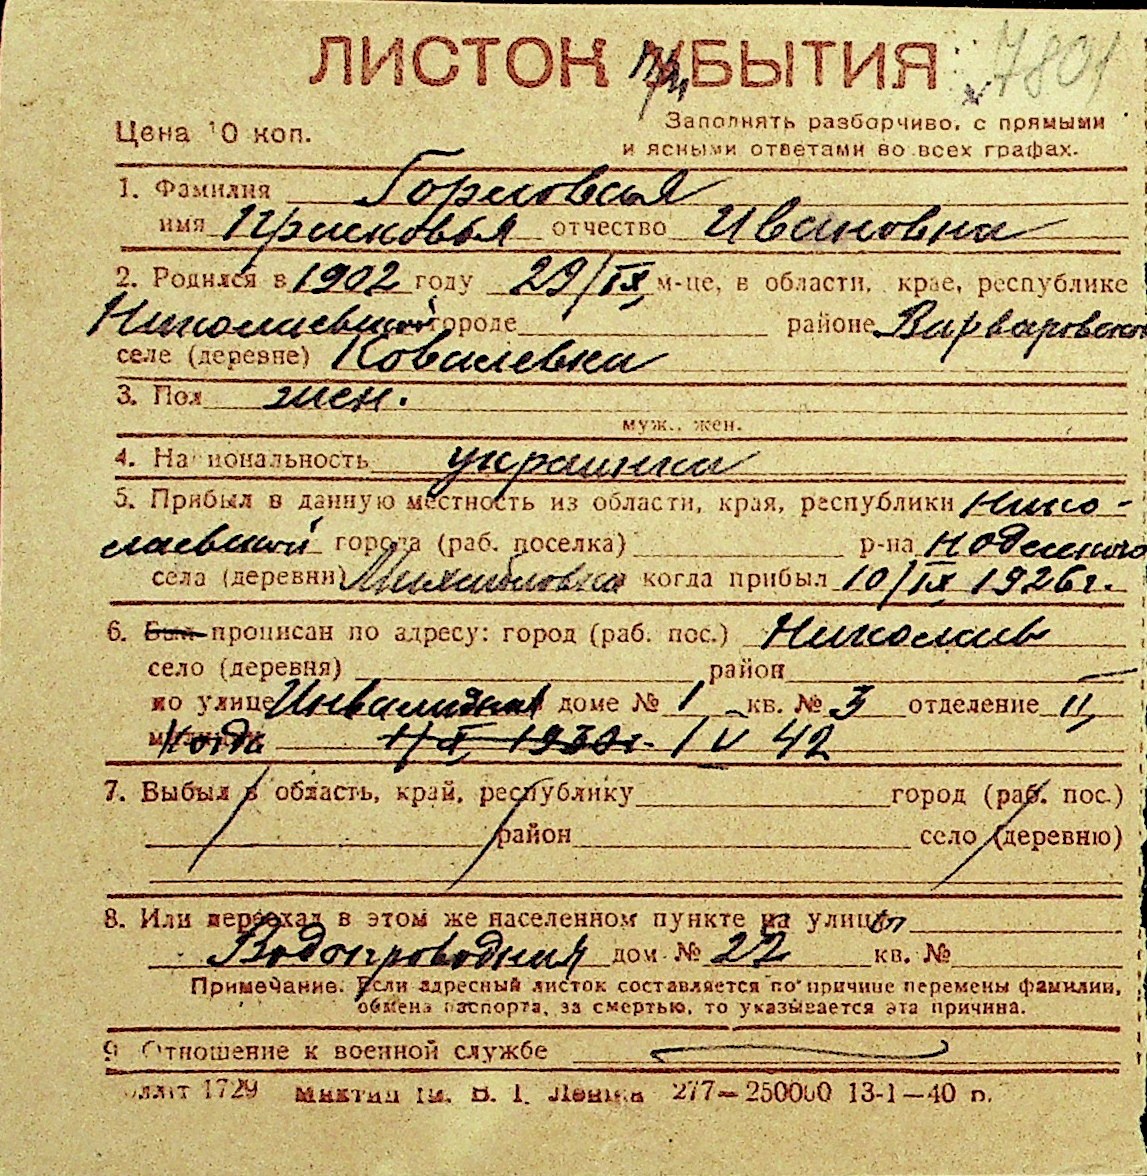 ЛИСТОК ПРИБЫТИЯ 7801
Цена 10 коп. Заполнять разборчиво, с прямыми
и ясными ответами во всех графах.
1. Фамилия Горловская
имя Присковья отчество Ивановна
2. Родился в 1902 году 29/IX м-це, в области, крае, республике
Николаевской городе районе Варваровском
селе (деревне) Ковалевка
3. Пол жен.
муж., жен.
4. Национальность украинка
5. Прибыл в данную местность из области, края, республики Нико-
лаевской города (раб. поселка) р-на
села (деревни) когда прибыл 10/IX 1926 г.
6. Был прописан по адресу: город (раб. пос.) Николаев
село (деревня) район
по улице Инвалидная доме № 1 кв. № 3 отделение II
Когда 1/X 1933г. 1 V 42
7. Выбыл в область, край, республику город (раб. пос.)
район село (деревню)
8. Или переехал в этом же населенном пункте на улицу
Водопроводная дом № 22 кв. №
Примечание. Если адресный листок составляется по причине перемены фамилии,
обмена паспорта, за смертью, то указывается эта причина.
9. Отношение к военной службе
1729 В. І. Леніна 277—250000 13-1—40 п.